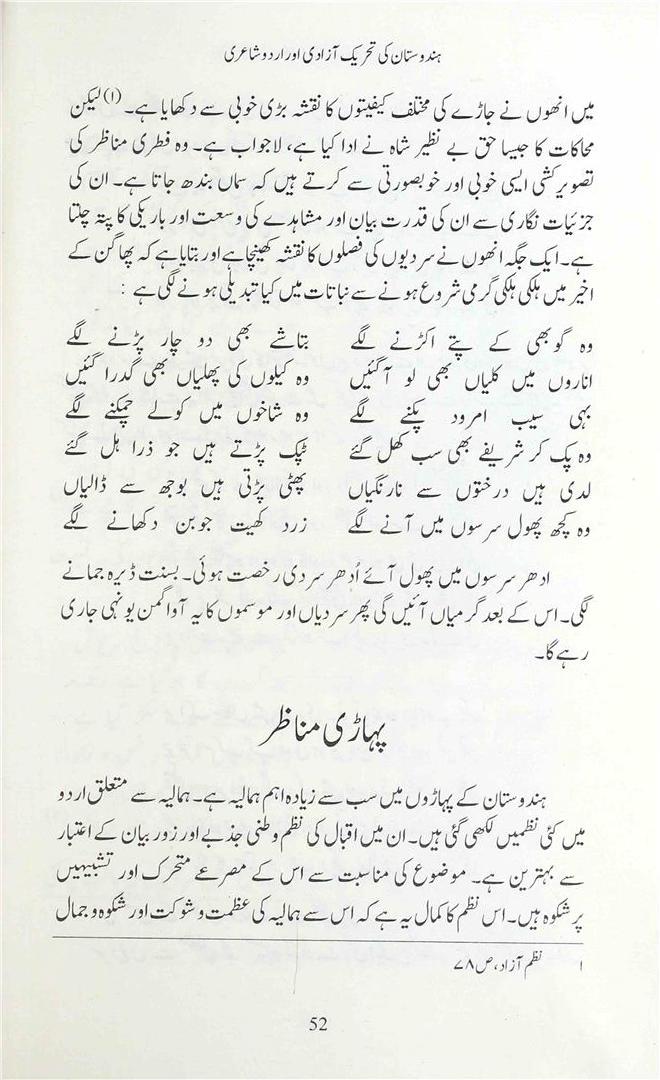 ہندوستان کی تحریک آزادی اور اردو شاعری
میں انھوں نے جاڑے کی مختلف کیفیتوں کا نقشہ بڑی خوبی سے دکھایا ہے۔(۱) لیکن
محاکات کا جیسا حق بے نظیر شاہ نے ادا کیا ہے، لاجواب ہے۔ وہ فطری مناظر کی
تصویر کشی ایسی خوبی اور خوبصورتی سے کرتے ہیں کہ سماں بندھ جاتا ہے۔ ان کی
جزئیات نگاری سے ان کی قدرت بیان اور مشاہدے کی وسعت اور باریکی کا پتہ چلتا
ہے۔ ایک جگہ انھوں نے سردیوں کی فصلوں کا نقشہ کھینچا ہے اور بتایا ہے کہ پھاگن کے
اخیر میں ہلکی ہلکی گرمی شروع ہونے سے نباتات میں کیا تبدیلی ہونے لگی ہے :
وہ گوبھی کے پتے اکڑنے لگے بتاشے بھی دو چار پڑنے لگے
اناروں میں کلیاں بھی لو آ گئیں وہ کیلوں کی پھلیاں بھی گدرا گئیں
بہی سیب امرود پکنے لگے وہ شاخوں میں کولے چمکنے لگے
وہ پک کر شریفے بھی سب کھل گئے ٹپک پڑتے ہیں جو ذرا ہل گئے
لدی ہیں درختوں سے نارنگیاں پھٹی پڑتی ہیں بوجھ سے ڈالیاں
وہ کچھ پھول سرسوں میں آنے لگے زرد کھیت جوبن دکھانے لگے
ادھر سرسوں میں پھول آئے اُدھر سردی رخصت ہوئی۔ بسنت ڈیرہ جمانے
لگی۔ اس کے بعد گرمیاں آئیں گی پھر سردیاں اور موسموں کا یہ آواگمن یونہی جاری
رہے گا۔
پہاڑی مناظر
ہندوستان کے پہاڑوں میں سب سے زیادہ اہم ہمالیہ ہے۔ ہمالیہ سے متعلق اردو
میں کئی نظمیں لکھی گئی ہیں۔ ان میں اقبال کی نظم وطنی جذبے اور زور بیان کے اعتبار
سے بہترین ہے۔ موضوع کی مناسبت سے اس کے مصرعے متحرک اور تشبیہیں
پر شکوہ ہیں۔ اس نظم کا کمال یہ ہے کہ اس سے ہمالیہ کی عظمت و شوکت اور شکوہ و جمال
۱ نظم آزاد، ص ۷۸
52